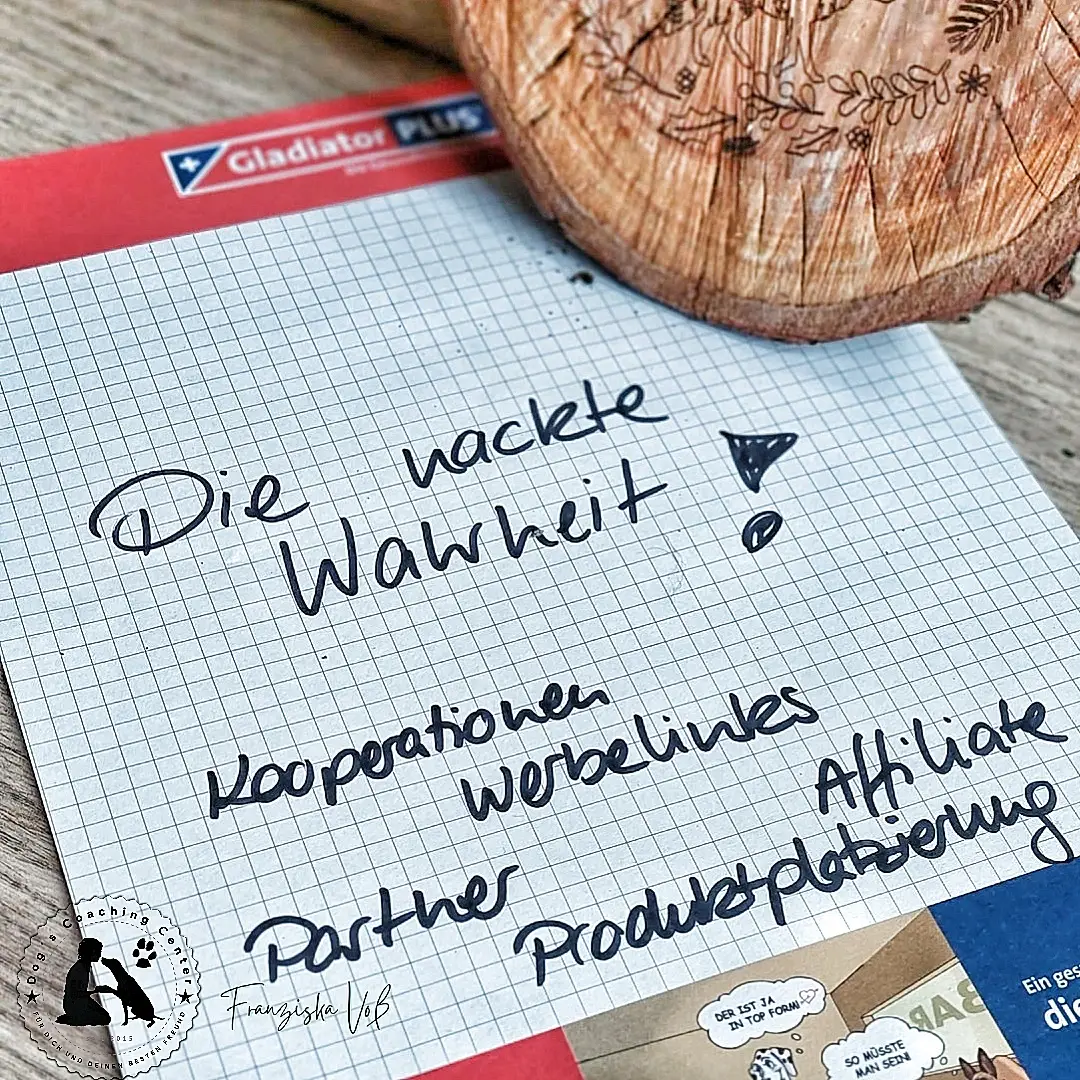 Gladiator PLUS
Die nackte
Wahrheit !
Kooperationen
Werbelinks
Affiliate
Partner
Produktplatzierung
Dog's Coaching Center
FÜR DICH UND DEINEN BESTEN FREUND
2015
Franziska Voß
DER IST JA
IN TOP FORM!
SO MÜSSTE
MAN SEIN!
BAR
Ein ges
die